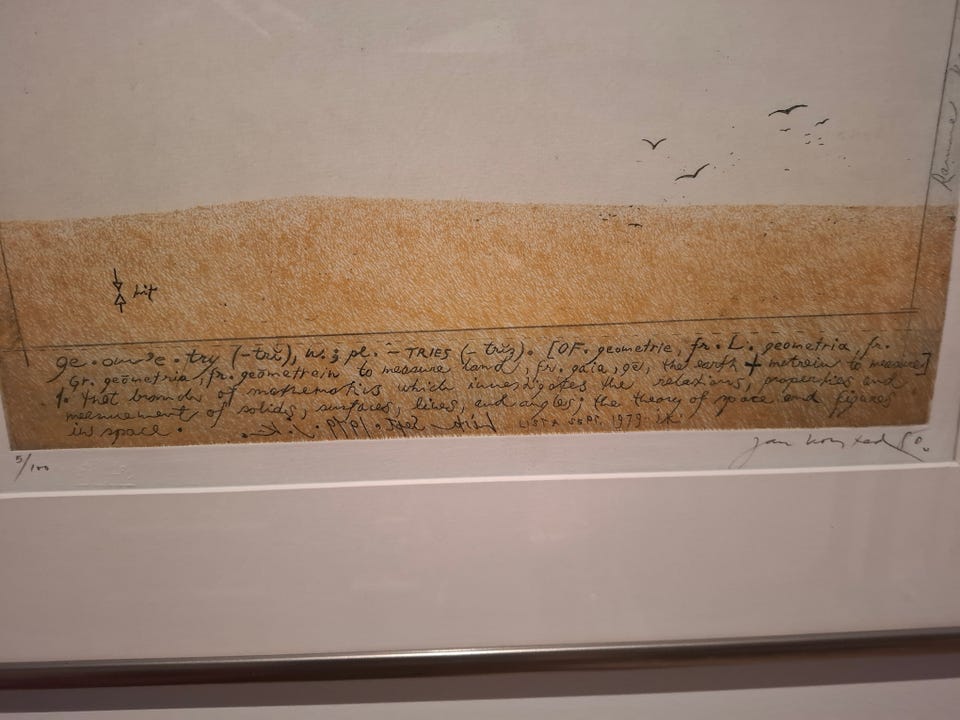 hit
ge·om'e·try (-trĭ), n.; pl. -TRIES (-trĭz). [OF. geometrie, fr. L. geometria, fr.
Gr. geōmetria, fr. geōmetrein to measure land, fr. gaia, gē, the earth + metrein to measure]
1. that branch of mathematics which investigates the relations, properties and
measurement of solids, surfaces, lines, and angles; the theory of space and figures
in space. LISTA SEPT. 1979
5/100